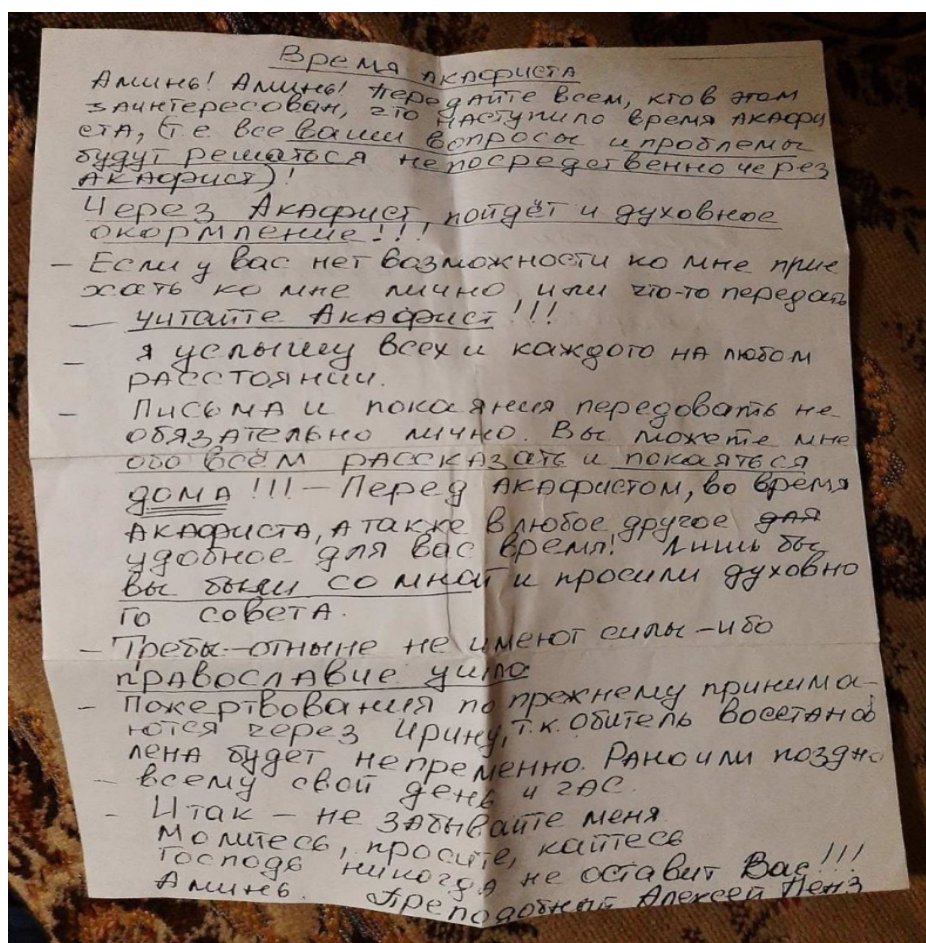 Время Акафиста
Аминь! Аминь! Передайте всем, кто в этом
заинтересован, что наступило время Акафи
ста, (т.е все ваши вопросы и проблемы
будут решаться непосредственно через
Акафист)!
Через Акафист пойдёт и духовное
окормление!!!
– Если у вас нет возможности ко мне прие
хать ко мне лично, или что-то передать
– читайте Акафист!!!
– я услышу всех и каждого на любом
расстоянии.
– Письма и покаяния передовать не
обязательно лично. Вы можете мне
обо всём рассказать и покаяться
дома!!! – Перед Акафистом, во время
Акафиста, а также в любое другое для
удобное для вас время! Лишь бы
вы были со мной и просили духовно
го совета.
– Требы – отныне не имеют силы – ибо
православие ушло
– Пожертвования по прежнему принима-
ются через Ирину, т.к. Обитель восстанов
лена будет непременно. Рано или поздно
– всему свой день и час.
– Итак – не забывайте меня
Молитесь, просите, кайтесь
Господь никогда не оставит Вас!!!
Аминь. Преподобный Алексей Пенз